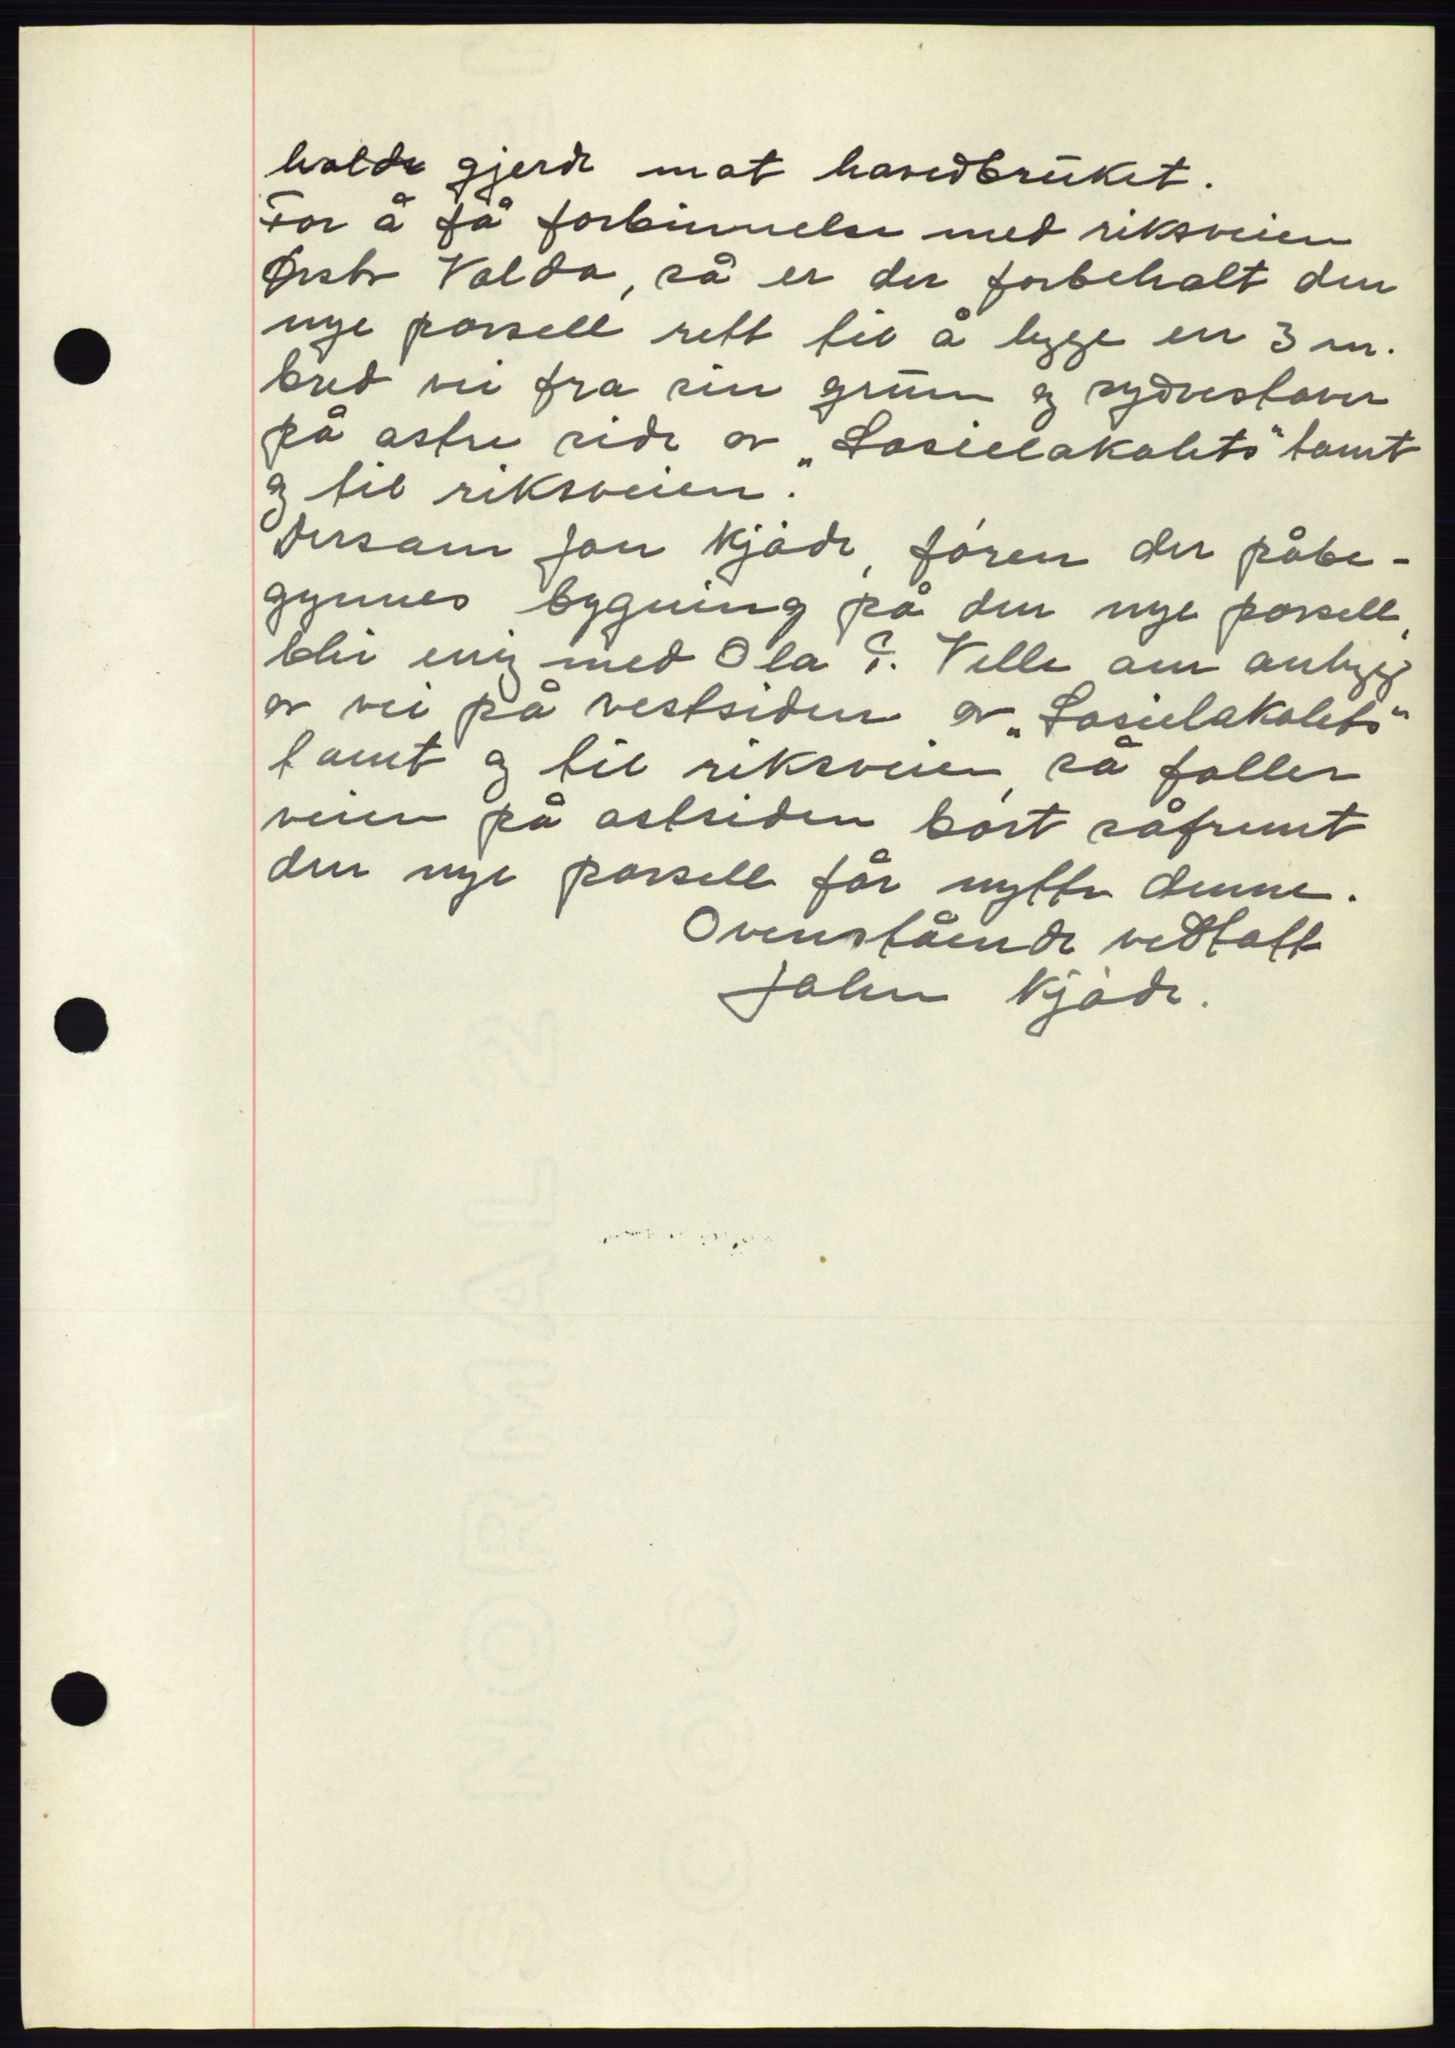 holde gjerde mot hovedbrüket.
For å få forbinnelse med riksveien
Ørsta Volda, så er der forbeholt den
nye parsell rett til å legge en 3 m.
bred vei fra sin grunn og sydvestover
på østre side av „Sosielakolets" tomt
og til riksveien.
Dersom Jon Kjøde, føren der påbe-
gynnes bygning på den nye parsell,
blir enig med Ola T. Velle om anlegg
av vei på vestsiden av „Losielakolets"
tomt og til riksveien, så faller
veien på østsiden bort såfremt
den nye parsell får nytte denne.
Ovenstående vedtatt
John Kjøde.